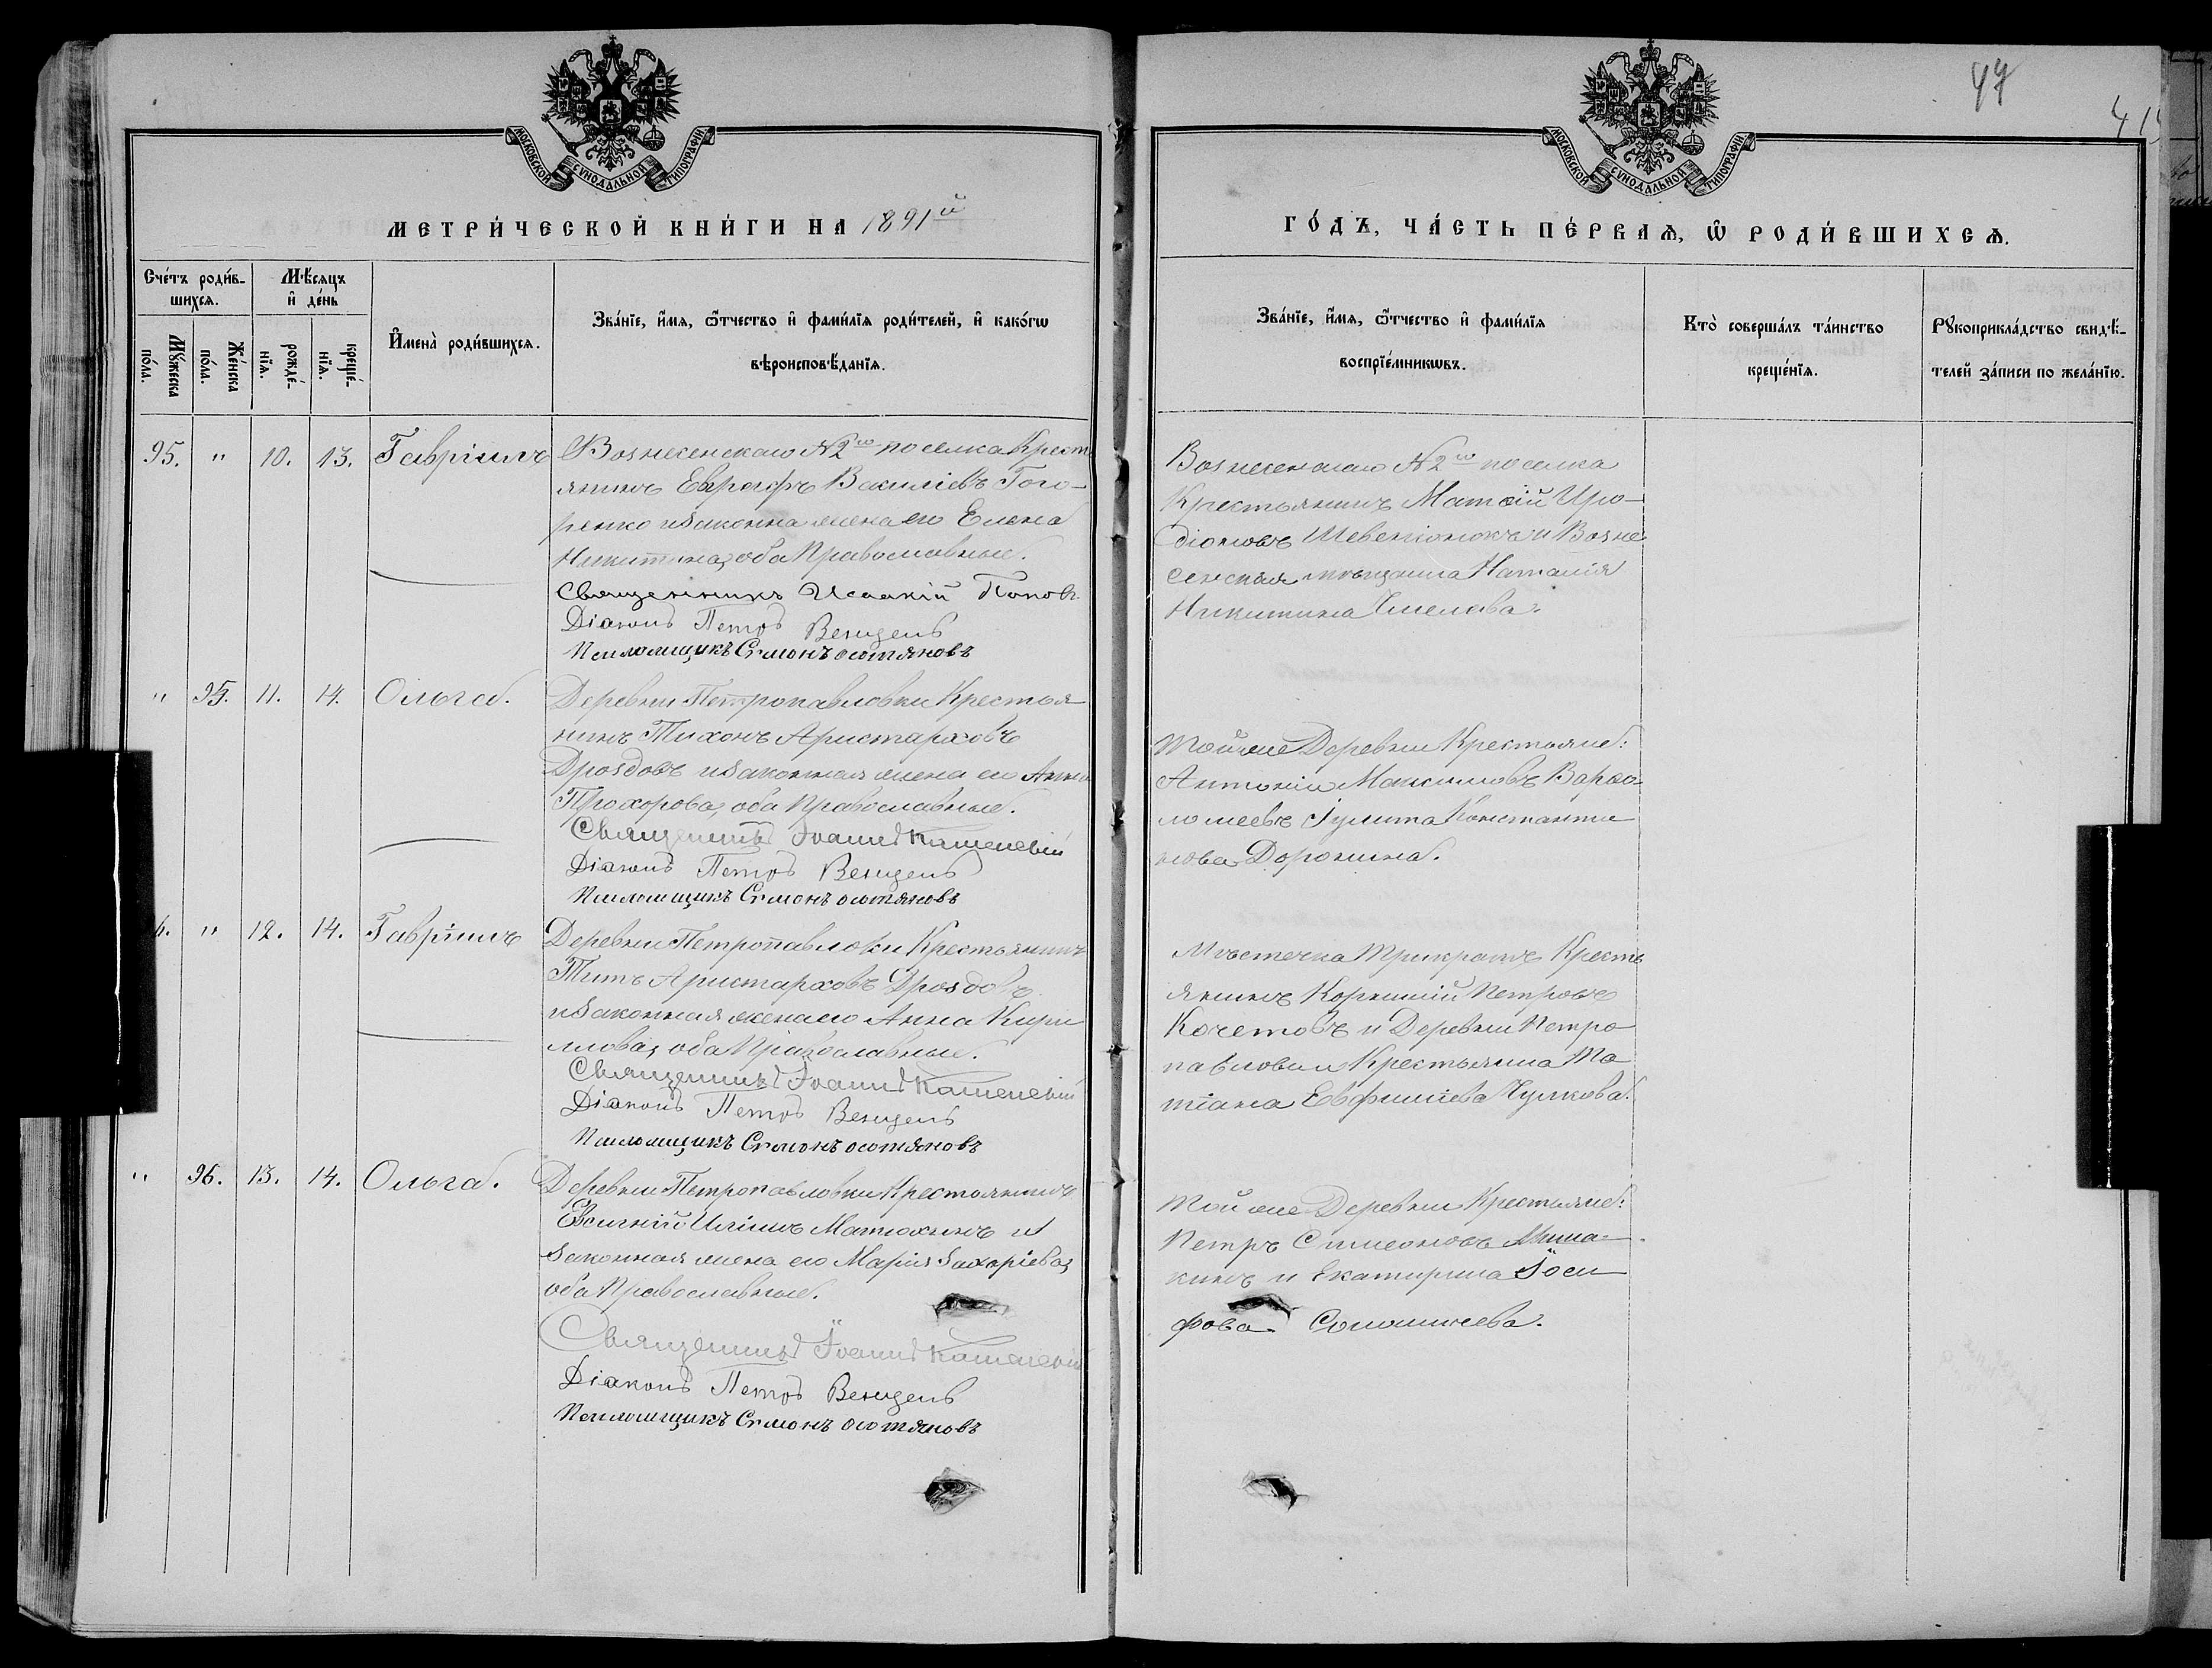 МОСКОВСКОЙ СѴНОДАЛЬНОЙ ТИПОГРАФІИ
МЕТРИ́ЧЕСКОЙ КНИ́ГИ НА 1891й
Сче́тъ роди́в-
шихсѧ.
Мѣ́сяцъ
и҆ де́нь
И҆мена̀ роди́вшихсѧ.
Зва́нїе, и҆́мѧ, ѻ҆́тчество и҆ фами́лїѧ роди́телей, и҆ како́гѡ
вѣроисповѣ́данїѧ.
Мꙋ́жеска
по́ла.
Же́нска
по́ла.
рожде́-
нїѧ.
креще́-
нїѧ.
95. " 10. 13. Гавріилъ
Вознесенскаго №2го поселка Крест
янинъ Евграфъ Василіевъ Гого-
ренко и законна жена его Елена
Никитина, оба Православные.
Священникъ Исаакій Поповъ
Діаконъ Петръ Венцель
Псаломщикъ Симонъ
" 95. 11. 14. Ольга.
Деревни Петропавловки Крестья
нинъ Тихонъ Аристарховъ
Дроздовъ и законная жена его Анна
Прохорова, оба Православные.
Священникъ Іоаннъ
Діаконъ Петръ Венцель
Псаломщикъ Симонъ
6. " 12. 14. Гавріилъ
Деревни Петропавловки Крестьянинъ
Титъ Аристарховъ Дроздовъ
и законная жена его Анна Кири
ллова, оба Православные.
Священникъ Іоаннъ
Діаконъ Петръ Венцель
Псаломщикъ Симонъ
" 96. 13. 14. Ольга.
Деревни Петропавловки Крестьянинъ
Иліинъ Матюхинъ и
законная жена его Марія Захаріева,
оба Православные.
Священникъ Іоаннъ
Діаконъ Петръ Венцель
Псаломщикъ Симонъ
МОСКОВСКОЙ СѴНОДАЛЬНОЙ ТИПОГРАФІИ
47
ГО́ДЪ, ЧА́СТЬ ПЕ́РВАѦ, Ѡ҆ РОДИ́ВШИХСѦ.
Зва́нїе, и҆́мѧ, ѻ҆́тчество и҆ фами́лїѧ
воспрїе́мникѡвъ.
Кто̀ соверша́лъ та́инство
креще́нїѧ.
Рꙋкоприкла́дство свидѣ́-
телей за́писи по жела́нїю.
Вознесенскаго №2го поселка
Крестьянинъ Матѳій Иро-
діоновъ и Возне
сенская мѣщанка Наталія
Никитина
Той же Деревни Крестьяне:
Антоній Максимовъ Варѳо-
ломеевъ Іулита Константи
нова Доронина.
Мѣстечка Трикратъ Кресть
янинъ Корнилій Петровъ
Кочетовъ и Деревни Петро
павловки Крестьянка Та
тіана Евфиміева Чулкова.
Той же Деревни Крестьяне:
Петръ Симеоновъ
кинъ и Екатирина Іоси
фова